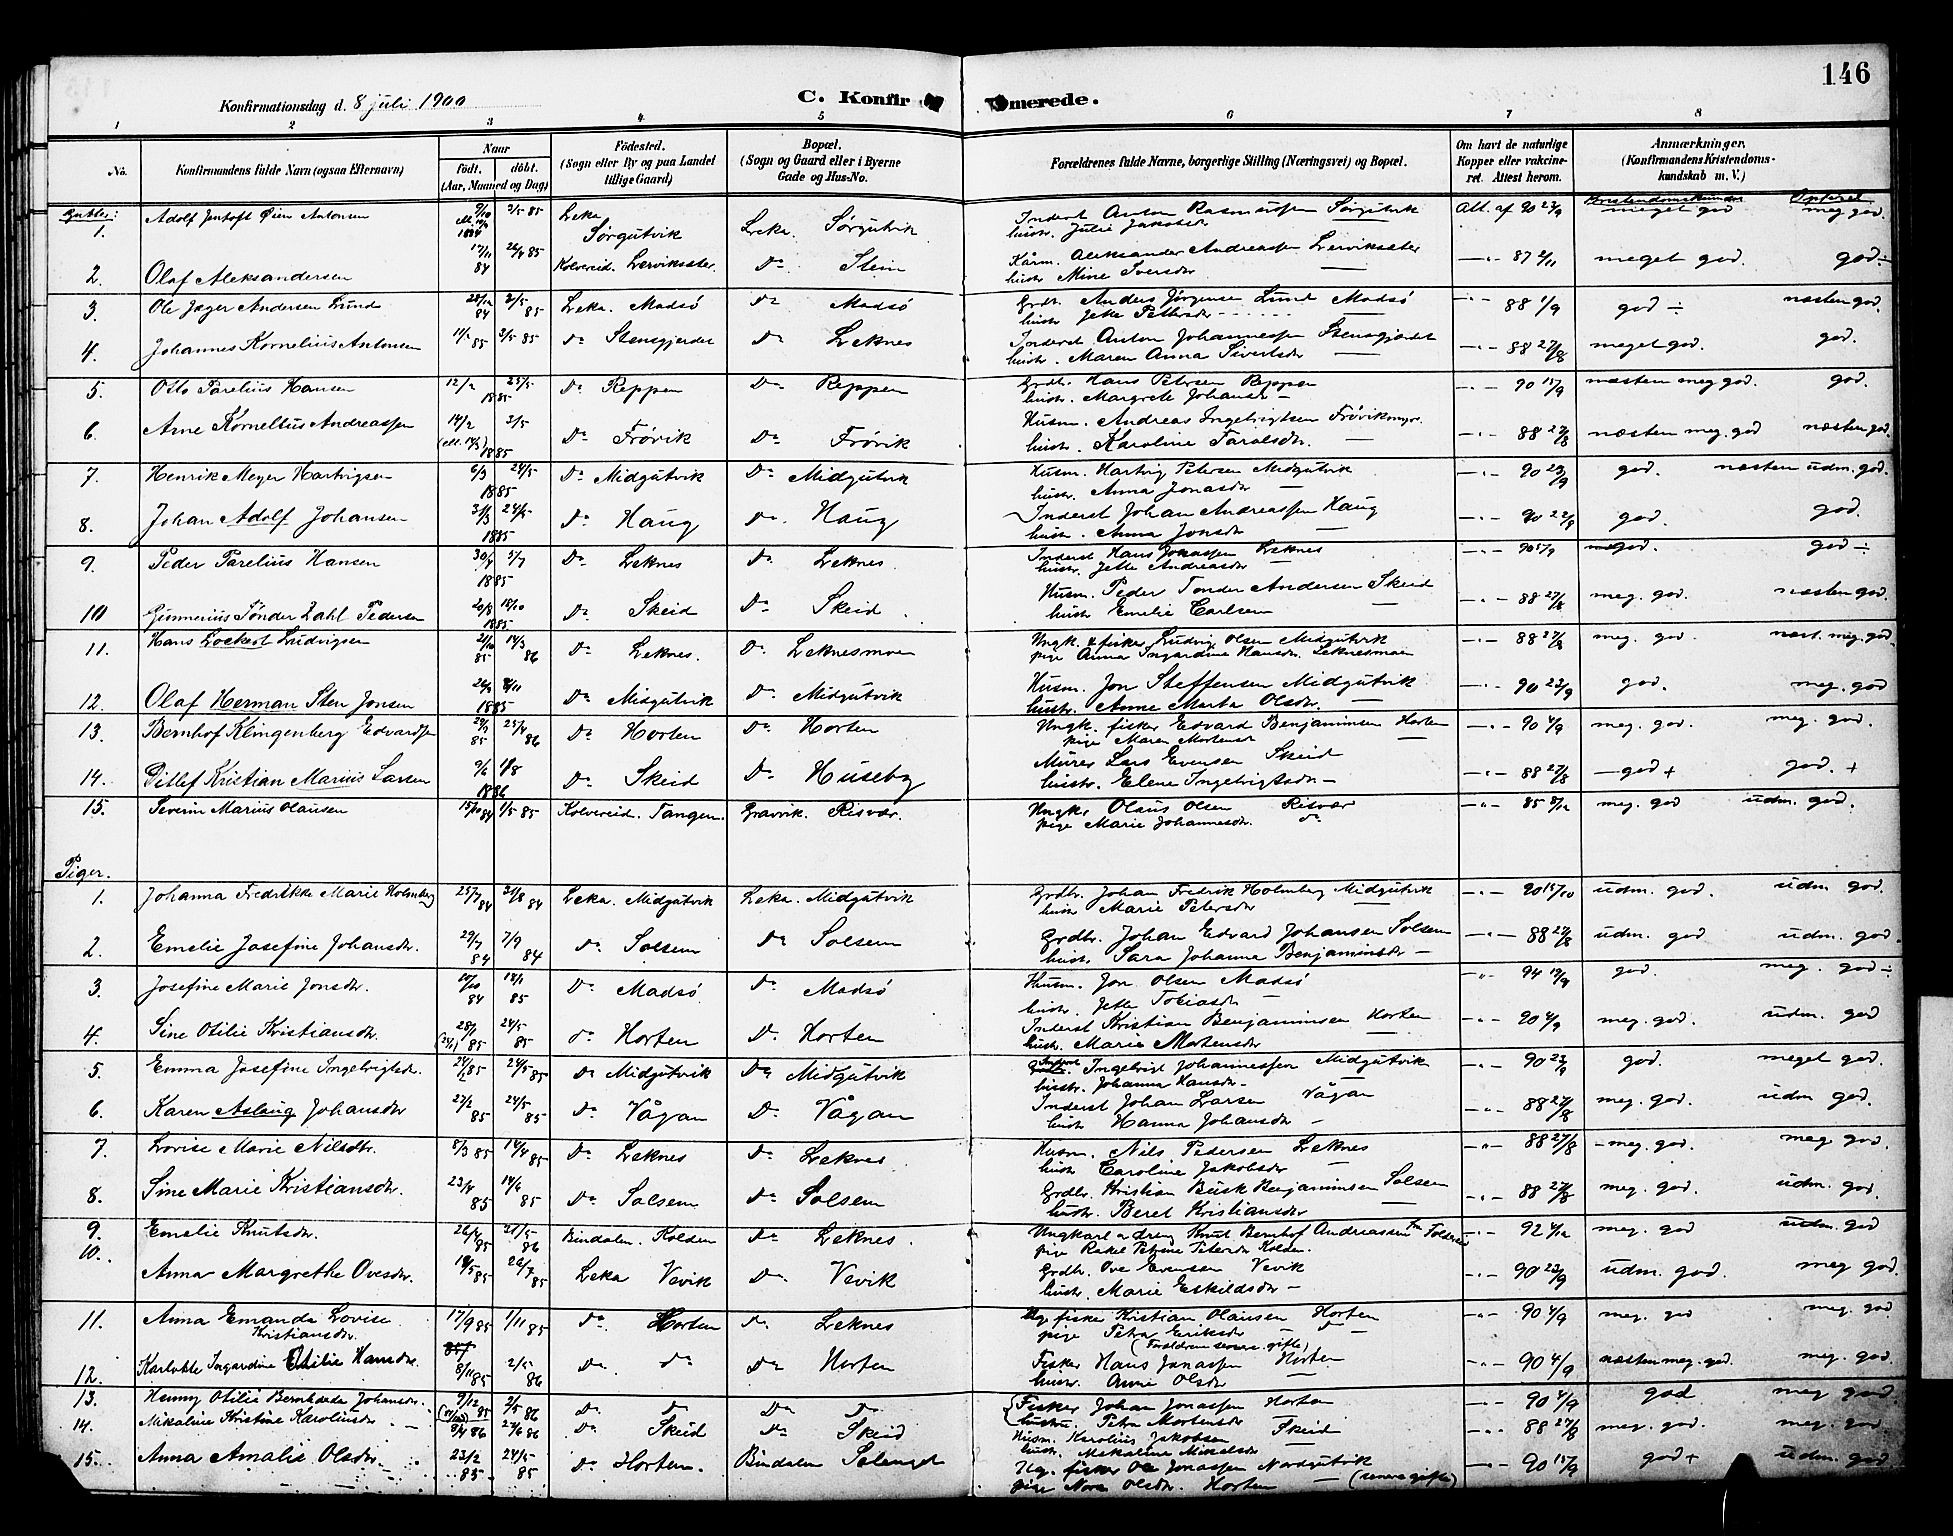 146
Konfirmationsdag d. 8 juli 1900 C. Konfir merede.
1 2 3 4 5 6 7 8
No. Konfirmandens fulde Navn (ogsaa Efternavn) Naar födt. döbt. (Aar, Maaned og Dag) Födested. (Sogn eller By og paa Landet tillige Gaard) Bopæl. (Sogn og Gaard eller i Byerne Gade og Hus-No. Forældrenes fulde Navne, borgerlige Stilling (Næringsvei) og Bopæl. Om havt de naturlige Kopper eller vakcineret. Attest herom. Anmærkninger. (Konfirmandens Kristendomskundskab m. V.)
1. Adolf Jentoft Öien Antonsen 2/5 85 Leka Sørgutvik Leka. Sørgutvik Inderst Anton Rasmussen Sørgutvik Att. af 90 23/9 meget god meg god.
hustr. Julie Jakobsd
2. Olaf Aleksandersen 17/11 84 26/4 85 Kolvereid. Lerviksæter. Do Stein Kårm. Aleksander Andreassen Lerviksæter 87 2/11 meget god. god ÷
hustr. Mine Iversdr
3. Ole Jæger Andersen Lund 28/12 84 2/5 85 Leka. Madsö Do Madsö Grdbr. Anders Jörgensen Lund Madsö 88 1/9 god ÷ næsten god.
hustr. Jette Pettersdr
4. Johannes Kornelius Antonsen 11/2 85 3/5 85 do Stensgjerdet Do Leknes Inderst Anton Johannessen Stensgjerdet 88 27/8 meget god. god.
hustr. Maren Anna Sivertsdr
5. Otto Parelius Hansen 12/2 25/5 1885 Do Reppen Do Reppen Grdbr. Hans Petersen Reppen 90 15/9 næsten meg god. god.
hustr. Margrete Johansdr
6. Arne Kornelius Andreassen 14/2 3/5 1885 Do Frövik Do Frövik Husm. Andreas Ingebrigtsen Frövikmyr. 88 27/8 næsten meg. god næsten god.
hustr. Karoline Taralsdr.
7. Henrik Meyer Hartvigsen 6/3 24/5 1885 Do Midgutvik Do Midgutvik Husm. Hartvig Petersen Midgutvik 90 23/9 god. næsten udm. god.
hustr. Anna Jonasdr
8. Johan Adolf Johansen 31/3 24/5 1885 Do Haug Do. Haug Inderst Johan Andreassen Haug 90 22/9 god. god.
hustr. Anna Jonsdr
9. Peder Parelius Hansen 30/4 5/7 1885 Do Leknes Do. Leknes. Inderst Hans Jonassen Leknes 90 15/9 god. god ÷
hustr. Jette Andreasdr
10 Gunnerius Tönder Dahl Pedersen 20/8 18/10 1885 Do Skeid Do Skeid. Husm. Peder Tonder Andersen Skeid 88 27/8 meg. god. næsten god.
hustr Emelie Carlsen
11. Hans Lockert Ludvigsen 21/10 85 14/3 86 Do Leknes. Do. Leknesmoen Ungk. & fisker Ludvig Olsen Midgutvik 88 27/8 meg. god næst. meg. god
pige Anna Ingardine Hansdr. Leknesmoen
12. Olaf Herman Sten Jonsen 8/11 1885 Do Midgutvik Do. Midgutvik Husm. Jon Steffensen Midgutvik 90 23/9 god. meg. god
hustr. Anne Marta Olsdr.
13. Bernhof Klingenberg Edvardsen 85 25/4 86 Do Horten Do Horten Ungk. fisker Edvard Benjaminsen Horten 90 4/9 meg. god. meg. god.
pige Maren Mortensd
14. Ditlef Kristian Marius Larsen 9/6 1/8 1886 Do Skeid Do Huseby Murer Lars Evensen Skeid 88 27/8 god + god. +
hustr. Elene Ingebrigtsdr
15. Severin Marius Olausen 15/10 84 1/5 85 Kolvereid. Tangen. Gravvik. Risvær. Ungkr Olaus Olsen Risvær 85 8/12 meg. god udm. god.
pige Marie Johannesdr. do
Piger.
1. Johanna Fredrikke Marie Holmberg 25/7 84 31/8 84 Leka. Midgutvik Leka. Midgutvik Grdbr. Johan Fredrik Holmberg Midgutvik 90 15/10 udm. god. udm. god.
hustr Marie Petersdr
2. Emelie Josefine Johansdr. 29/7 84 7/9 84 do Solsem do Solsem Grdbr. Johan Edvard Johansen Solsem 88 27/8 udm. god udm. god.
hustr. Sara Johanna Benjaminsdr
3. Josefine Marie Jonsdr. 10/10 84 18/1 85 Do Madsö Do Madsö Husm. Jon Olsen Madsö 94 19/9 god. meg. god ÷
hustr. Jette Tobiasdr
4. Sine Otilie Kristiansdr. 28/1 85 24/5 85 do Horten D. Horten Inderst Kristian Benjaminsen Horten 90 4/9 meg. god. udm. god
hustr. Marie Mortensdr
5. Emma Josefine Ingebrigtsd. 24/2 85 24/5 85 Do Midgutvik Do Midgutvik Inderst Ingebrigt Johannessen Midgutvik 90 23/9 god. meget god.
hustr. Johanna Hansdr
6. Karen Aslaug Johansdr 27/2 85 24/5 85 Do Vågan D. Vågan Inderst Johan Larsen Vågan 88 27/8 meg. god. udm god.
hustr Hanna Johansdr
7. Lovise Marie Nilsdr. 8/3 85 14/4 85 Do Leknes D. Leknes Husm. Nils Pedersen Leknes 88 27/8 meg. god. meg god.
hustr Caroline Jakobsdr
8. Sine Marie Kristiansdr. 23/4 85 14/6 85 Do Solsem Do Solsem Grdbr. Kristian Busk Benjaminsen Solsem 88 27/8 meg. god. udm. god.
hustr. Beret Kristiansdr
9. Emelie Knutsdr. 26/4 85 31/5 86 Bindalen. Kolden Do Leknes. Ungkarl a dreng Knut Bernhof Andreassen 92 4/12 meg. god udm. god
pige Rakel Petrine Petersdr Kolden.
10. Anna Margrethe Ovesdr. 19/5 85 26/7 85 Leka Vevik Do Vevik Grdbr. Ove Evensen Vevik 90 23/9 udm. god. meg god
hustr. Marie Eskildsdr
11. Anna Emanda Lovise Kristiansdr. 17/9 85 1/11 85 Do. Horten Do. Leknes Ug. fisker Kristian Olausen Horten 90 4/9 meg. god meg. god
pige Petra Eriksdr do
(Forældrene senere gifte)
12. Karlotte Ingardine Otilie Hansdr. 8/11 85 2/5 86 Do. do Do Horten Fisker Hans Jonassen Horten 90 4/9 næsten meg. god. meg. god.
hustr. Anne Olsdr
13. Henny Otilie Bernharda Johansdr. 9/12 85 2/5 86 Do. do Do do Fisker Johan Jonassen Horten 90 4/9 god meg god
hustru. Petra Mortensdr
14. Mikaline Kristine Karoliusdr 9/4 86 27/6 86 Do Skeid Do Skeid Husm. Karolius Jakobsen Skeid 88 27/8 meg. god. meg. god.
hustr. Mikaline Mikalsdr
15. Anna Amalie Olsdr. 23/2 85 24/5 85 do Horten. Bindalen Husm. Ug. fisker Ole Jonassen Nordgutvik 90 15/9 god + udm. god
pige Nora Olsdr. Horten (senere gifte)